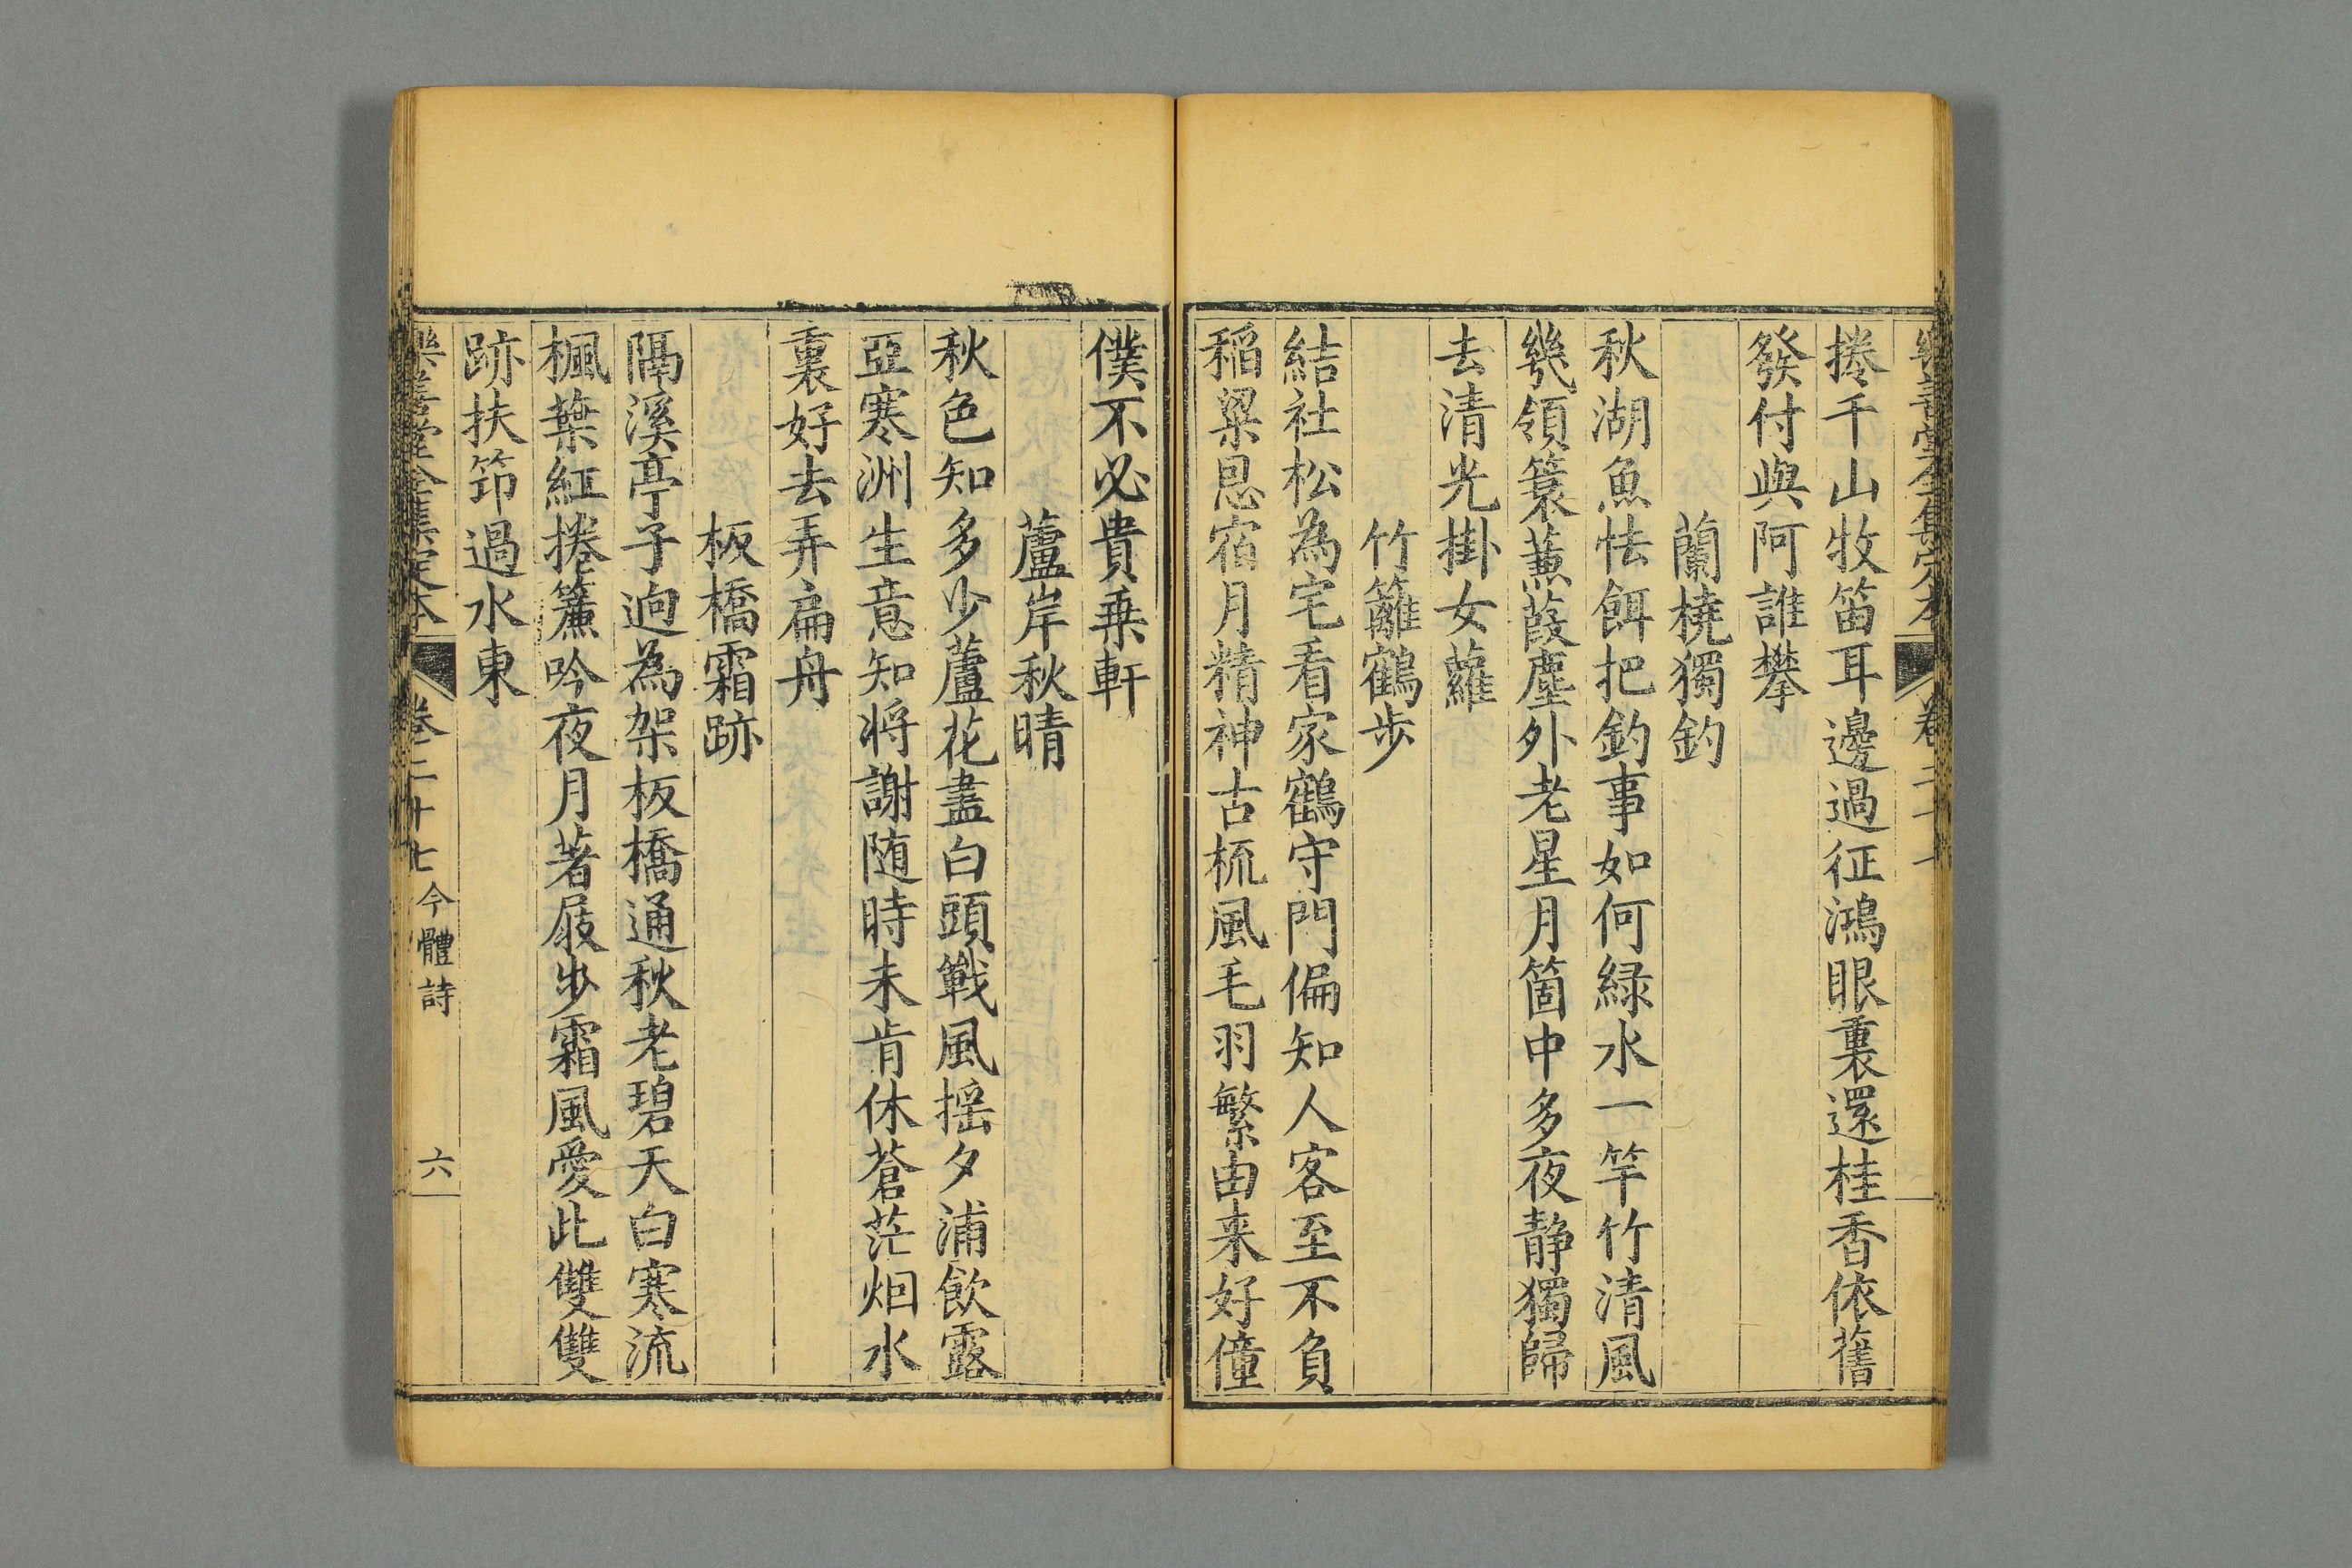 捲千山牧笛耳邊過征鴻眼裏還桂香依舊
發付與阿誰攀
蘭橈獨釣
秋湖魚怯餌把釣事如何緑水一竿竹清風
幾領簑蒹葭塵外老星月箇中多夜静獨歸
去清光掛女蘿
竹籬鶴步
結社松為宅看家鶴守門偏知人客至不負
稲粱恩宿月精神古梳風毛羽繁由来好僮
僕不必貴乗軒
蘆岸秋晴
秋色知多少蘆花盡白頭戰風揺夕浦飲露
亞寒洲生意知将謝随時未肯休蒼茫烟水
裏好去弄扁舟
板橋霜跡
隔溪亭子逈為架板橋通秋老碧天白寒流
楓葉紅捲簾吟夜月著屐步霜風愛此雙雙
跡扶笻過水東
樂善堂全集定本 卷二十七 今體詩 六